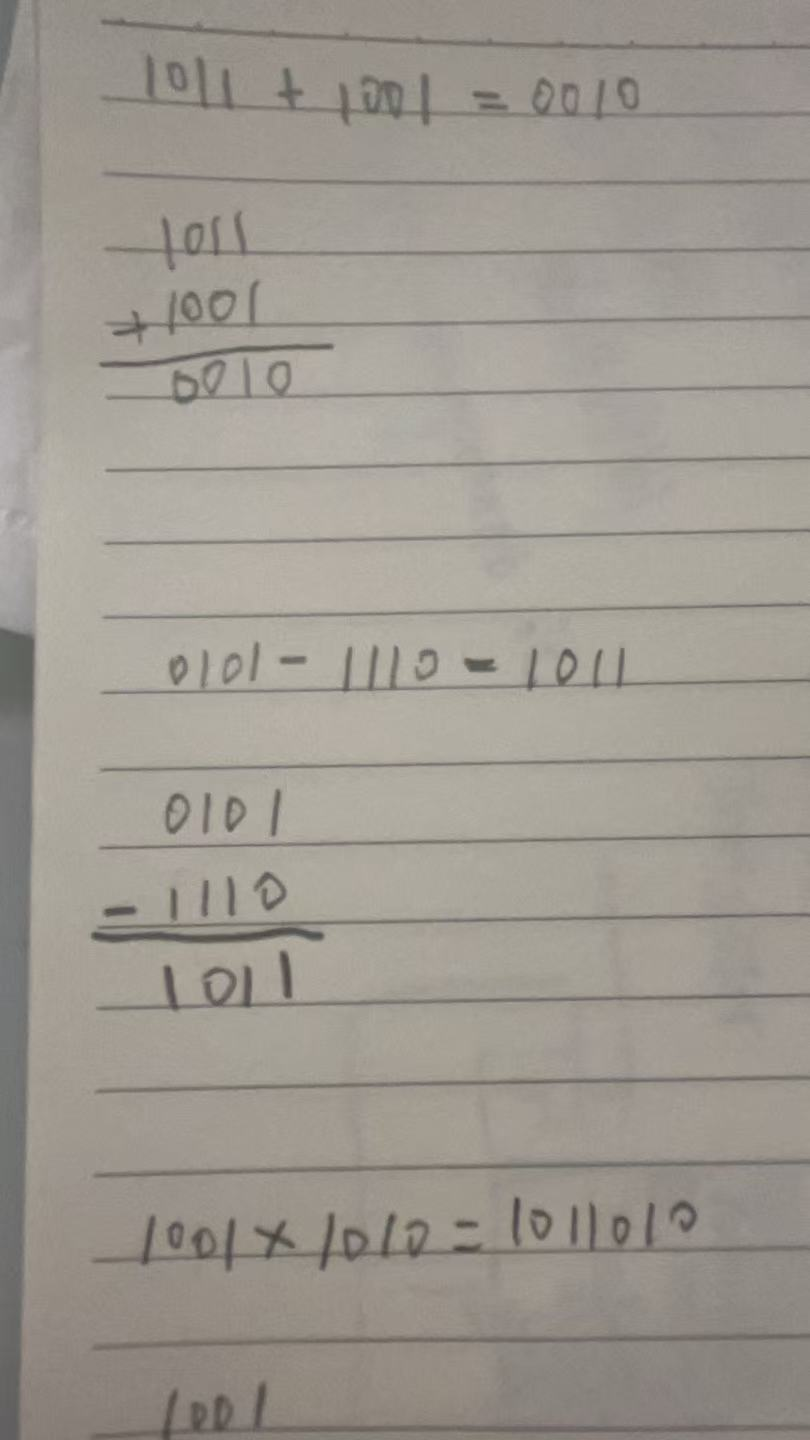 1011 + 1001 = 0010
1011
+ 1001
0010
0101 - 1110 = 1011
0101
- 1110
1011
1001 × 1010 = 1011010
1001